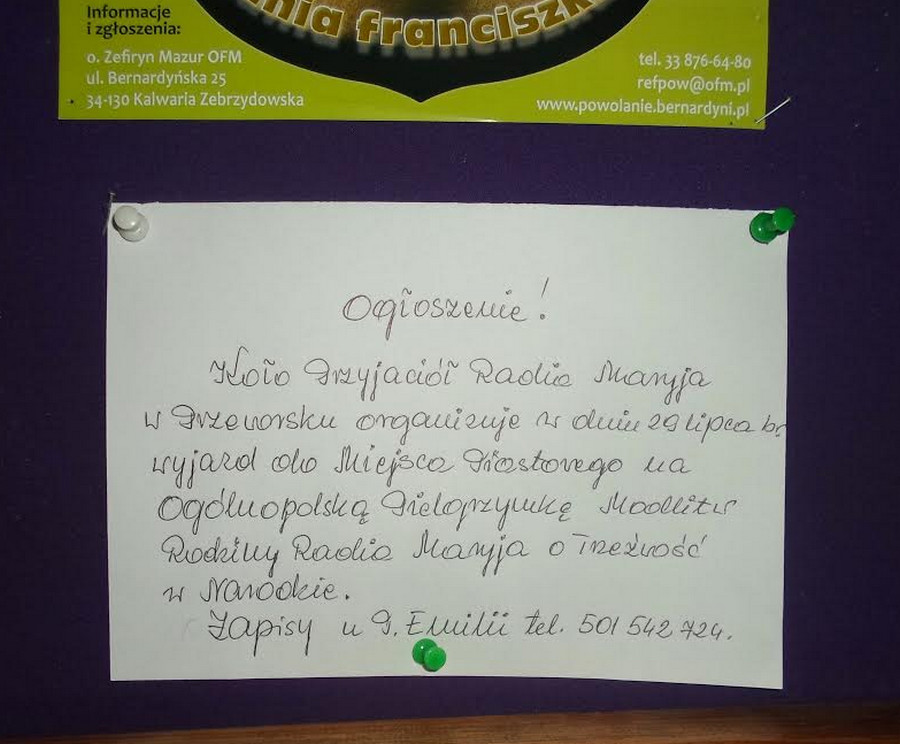 nia franciszk
Informacje
i zgłoszenia:
o. Zefiryn Mazur OFM
ul. Bernardyńska 25
34-130 Kalwaria Zebrzydowska
tel. 33 876-64-80
refpow@ofm.pl
www.powolanie.bernardyni.pl
Ogłoszenie!
Koło Przyjaciół Radia Maryja
w Przeworsku organizuje w dniu 29 lipca br
wyjazd do Miejsca Piastowego na
Ogólnopolską Pielgrzymkę Modlitw
Rodziny Radia Maryja o Trzeźwość
w Narodzie.
Zapisy u P. Emilii tel. 501 542 724.